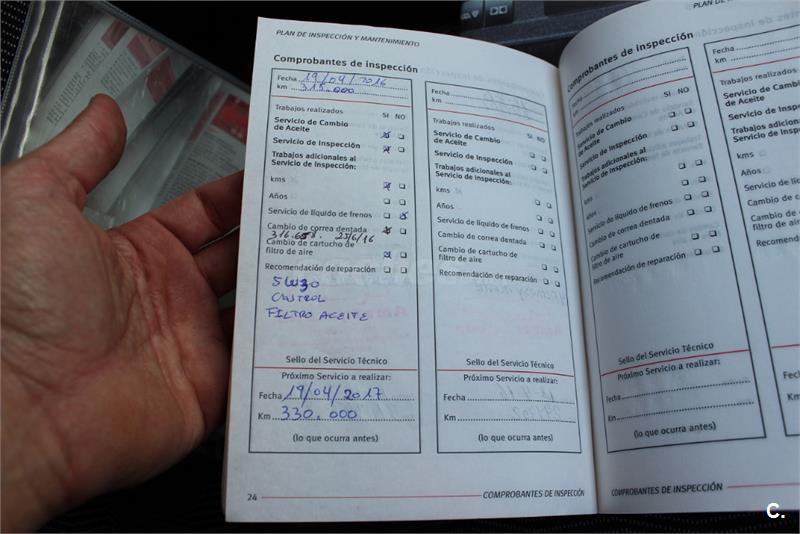 PLAN DE INSPECCIÓN Y MANTENIMIENTO
Comprobantes de inspección
Fecha 19/04/2016
km 315.000
Trabajos realizados SI NO
Servicio de Cambio
de Aceite
Servicio de Inspección
Trabajos adicionales al
Servicio de Inspección:
kms
Años
Servicio de líquido de frenos
Cambio de correa dentada
25/6/16
Cambio de cartucho de
filtro de aire
Recomendación de reparación
5W30
CASTROL
FILTRO ACEITE
Sello del Servicio Técnico
Próximo Servicio a realizar:
Fecha 19/04/2017
Km 330.000
(lo que ocurra antes)
24
COMPROBANTES DE INSPECCIÓN
Fecha
km
Trabajos realizados SI NO
Servicio de Cambio
de Aceite
Servicio de Inspección
Trabajos adicionales al
Servicio de Inspección:
kms
Años
Servicio de líquido de frenos
Cambio de correa dentada
Cambio de cartucho de
filtro de aire
Recomendación de reparación
Sello del Servicio Técnico
Próximo Servicio a realizar:
Fecha
Km
(lo que ocurra antes)
Comprobantes de inspección
Fecha
km
Trabajos realizados SI NO
Servicio de Cambio
de Aceite
Servicio de Inspección
Trabajos adicionales al
Servicio de Inspección:
kms
Años
Servicio de líquido de frenos
Cambio de correa dentada
Cambio de cartucho de
filtro de aire
Recomendación de reparación
Sello del Servicio Técnico
Próximo Servicio a realizar:
Fecha
Km
(lo que ocurra antes)
COMPROBANTES DE INSPECCIÓN
PLAN DE
Fecha
km
Trabajos realizados
Servicio de Cambio
de Aceite
Servicio de Inspección
Trabajos adicionales
Servicio de Inspección
kms
Años
Servicio de
Cambio de
Cambio de
filtro de aire
Recomendación
C.